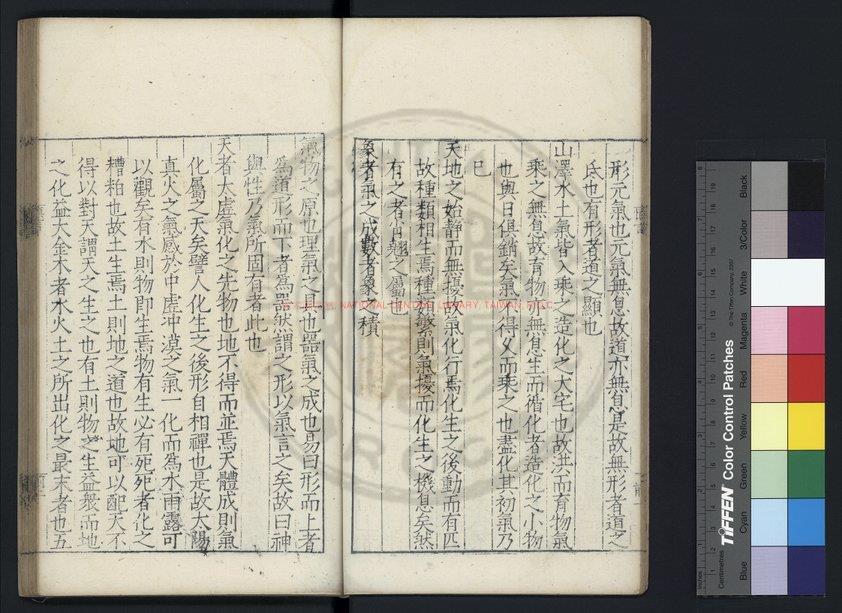 形元氣也元氣無息故道亦無息是故無形者道之
氐也有形者道之顯也
山澤水土氣皆入乘之造化之大宅也故洪而育物氣
乘之無息故育物亦無息生而循化者造化之小物
也與日俱銷矣氣不得久而乘之也盡化其初氣乃
已
天地之始靜而無擾故氣化行焉化生之後動而有匹
故種類相生焉種類繁則氣擾而化生之機息矣然
有之者肖翹之屬也
象者氣之成數者象之積
氣物之原也理氣之具也器氣之成也易曰形而上者
為道形而下者為器然謂之形以氣言之矣故曰神
與性乃氣所固有者此也
天者太虛氣化之先物也地不得而並焉天體成則氣
化屬之天矣譬人化生之後形自相禪也是故太陽
真火之氣感於中虛冲漠之氣一化而為水雨露可
以觀矣有水則物即生焉物有生必有死死者化之
糟粕也故土生焉土則地之道也故地可以配天不
得以對天謂天之生之也有土則物之生益衆而地
之化益大金木者水火土之所出化之最末者也五
NATIONAL CENTRAL LIBRARY, TAIWAN, R.O.C.
TIFFEN Color Control Patches
© The Tiffen Company, 2007
Blue
Cyan
Green
Yellow
Red
Magenta
White
3/Color
Black
Inches
Centimetres